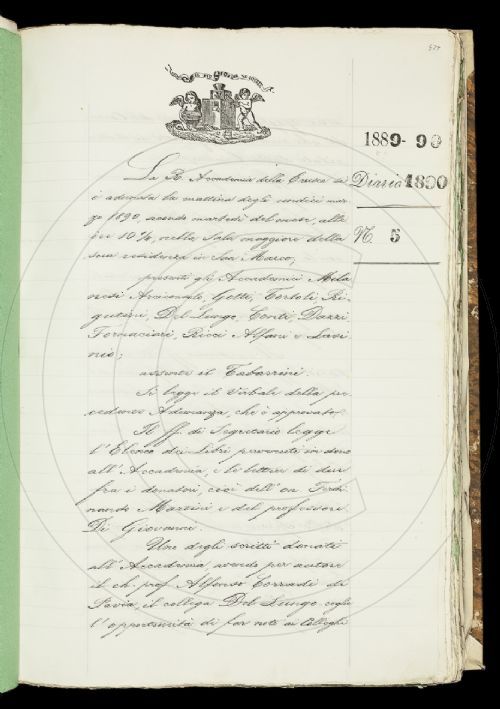 577
1889-90
Diario 1890
N. 5
La R. Accademia della Crusca si
è adunata la mattina degli undici mar-
zo 1890, secondo martedì del mese, alle
ore 10 ½, nella Sala maggiore della
sua residenza in San Marco;
presenti gli Accademici Mila-
nesi Arciconsolo, Gotti, Tortoli, Ri-
gutini, Del Lungo, Conti, Dazzi
Fornaciari, Ricci, Alfani e Savi-
nio;
assente il Tabarrini.
Si legge il Verbale della pre-
cedente Adunanza, che è approvato.
Il ff. di Segretario legge
l'Elenco dei Libri pervenuti in dono
all'Accademia, e le lettere di
fra i donatori, cioè dell'on. Ferdi-
nando Martini e del professore
Di Giovanni.
Uno degli scritti donati
all'Accademia avendo per autore
il ch. prof. Alfonso Corradi di
Pavia, il collega Del Lungo coglie
l'opportunità di far noto ai Colleghi